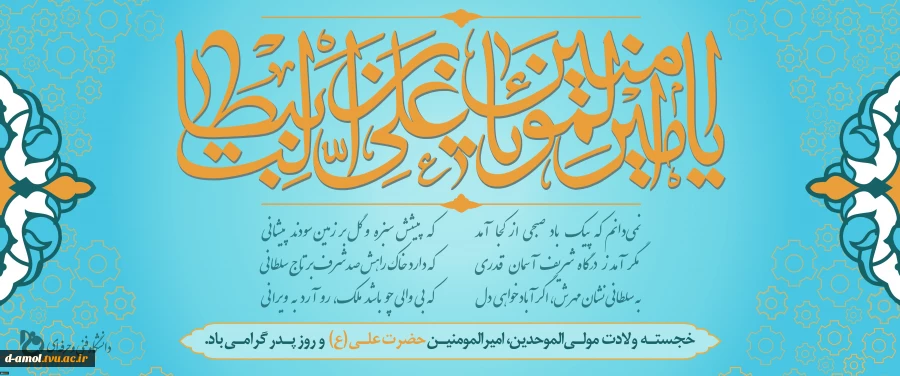 یا امیرالمومنین یا علی بن ابیطالب
نمی‌دانم که پیک باد صبحی از کجا آمد که پیشش سبزه و گل بر زمین سودند پیشانی
مگر آمد ز درگاه شریف آسمان قدری که دارد خاک راهش صد شرف بر تاج سلطانی
به سلطانی نشان مهرش، اگر آباد خواهی دل که بی والی چو باشد ملک، رو آرد به ویرانی
خجسته ولادت مولی‌الموحدین، امیرالمومنین حضرت علی (ع) و روز پدر گرامی باد.
دانشگاه فنی و حرفه‌ای
d-amol.tvu.ac.ir